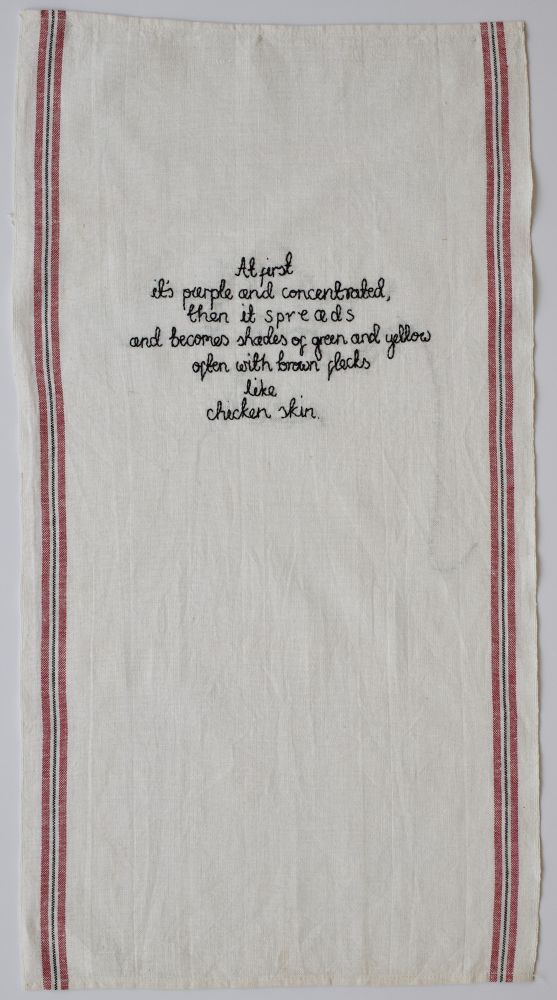 At first
it's purple and concentrated,
then it spreads
and becomes shades of green and yellow
often with brown flecks
like
chicken skin.